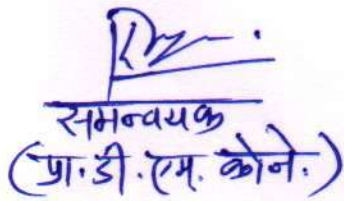 समन्वयक
(प्रा. डी. एम. कोने.)